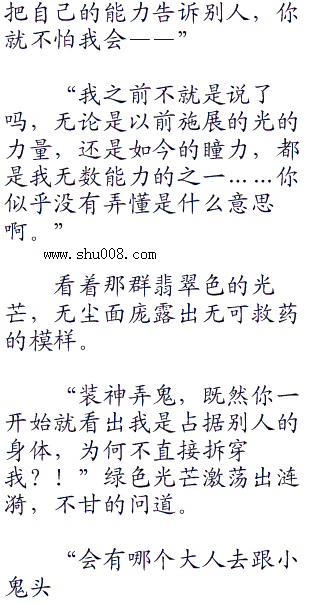 把自己的能力告诉别人，你
就不怕我会——”
“我之前不就是说了
吗，无论是以前施展的光的
力量，还是如今的瞳力，都
是我无数能力的之一……你
似乎没有弄懂是什么意思
啊。”
www.shu008.com
看着那群翡翠色的光
芒，无尘面庞露出无可救药
的模样。
“装神弄鬼，既然你一
开始就看出我是占据别人的
身体，为何不直接拆穿
我？！”绿色光芒激荡出涟
漪，不甘的问道。
“会有哪个大人去跟小
鬼头